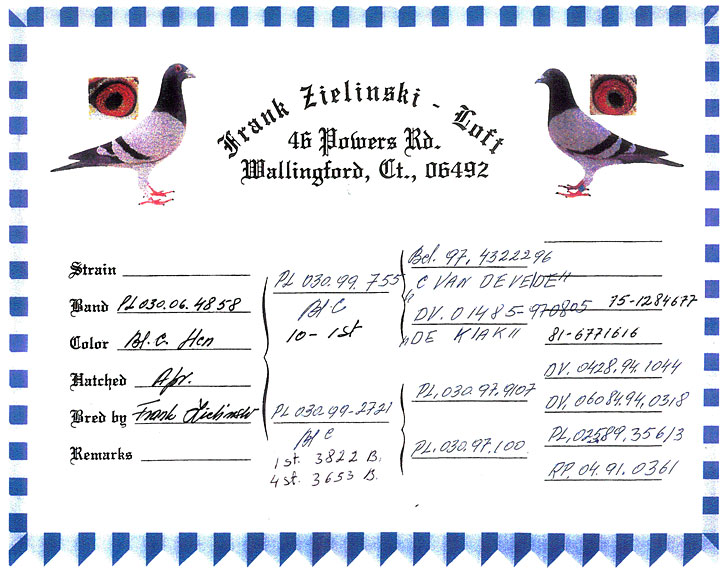 Frank Zielinski - Loft
46 Powers Rd.
Wallingford, Ct., 06492
Strain
Band PL030.06.4858
Color Bl.C. Hen
Hatched Apr.
Bred by Frank Zielinski
Remarks
PL 030.99.755
Bl C
10-1st
PL 030.99-2721
Bl C
1st. 3822 B.
4st. 3653 B.
Bel. 97, 4322296
"C VAN DE VELDE"
DV. 01485-970805
"DE KIAKII
PL, 030.97.9107
PL, 030, 97.100
75-1284677
81-6771616
DV. 0428.94.1044
DV, 06084.94,0318
PL, 02589.35613
RP. 04.91.0361